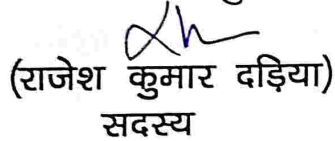 (राजेश कुमार दड़िया)
सदस्य